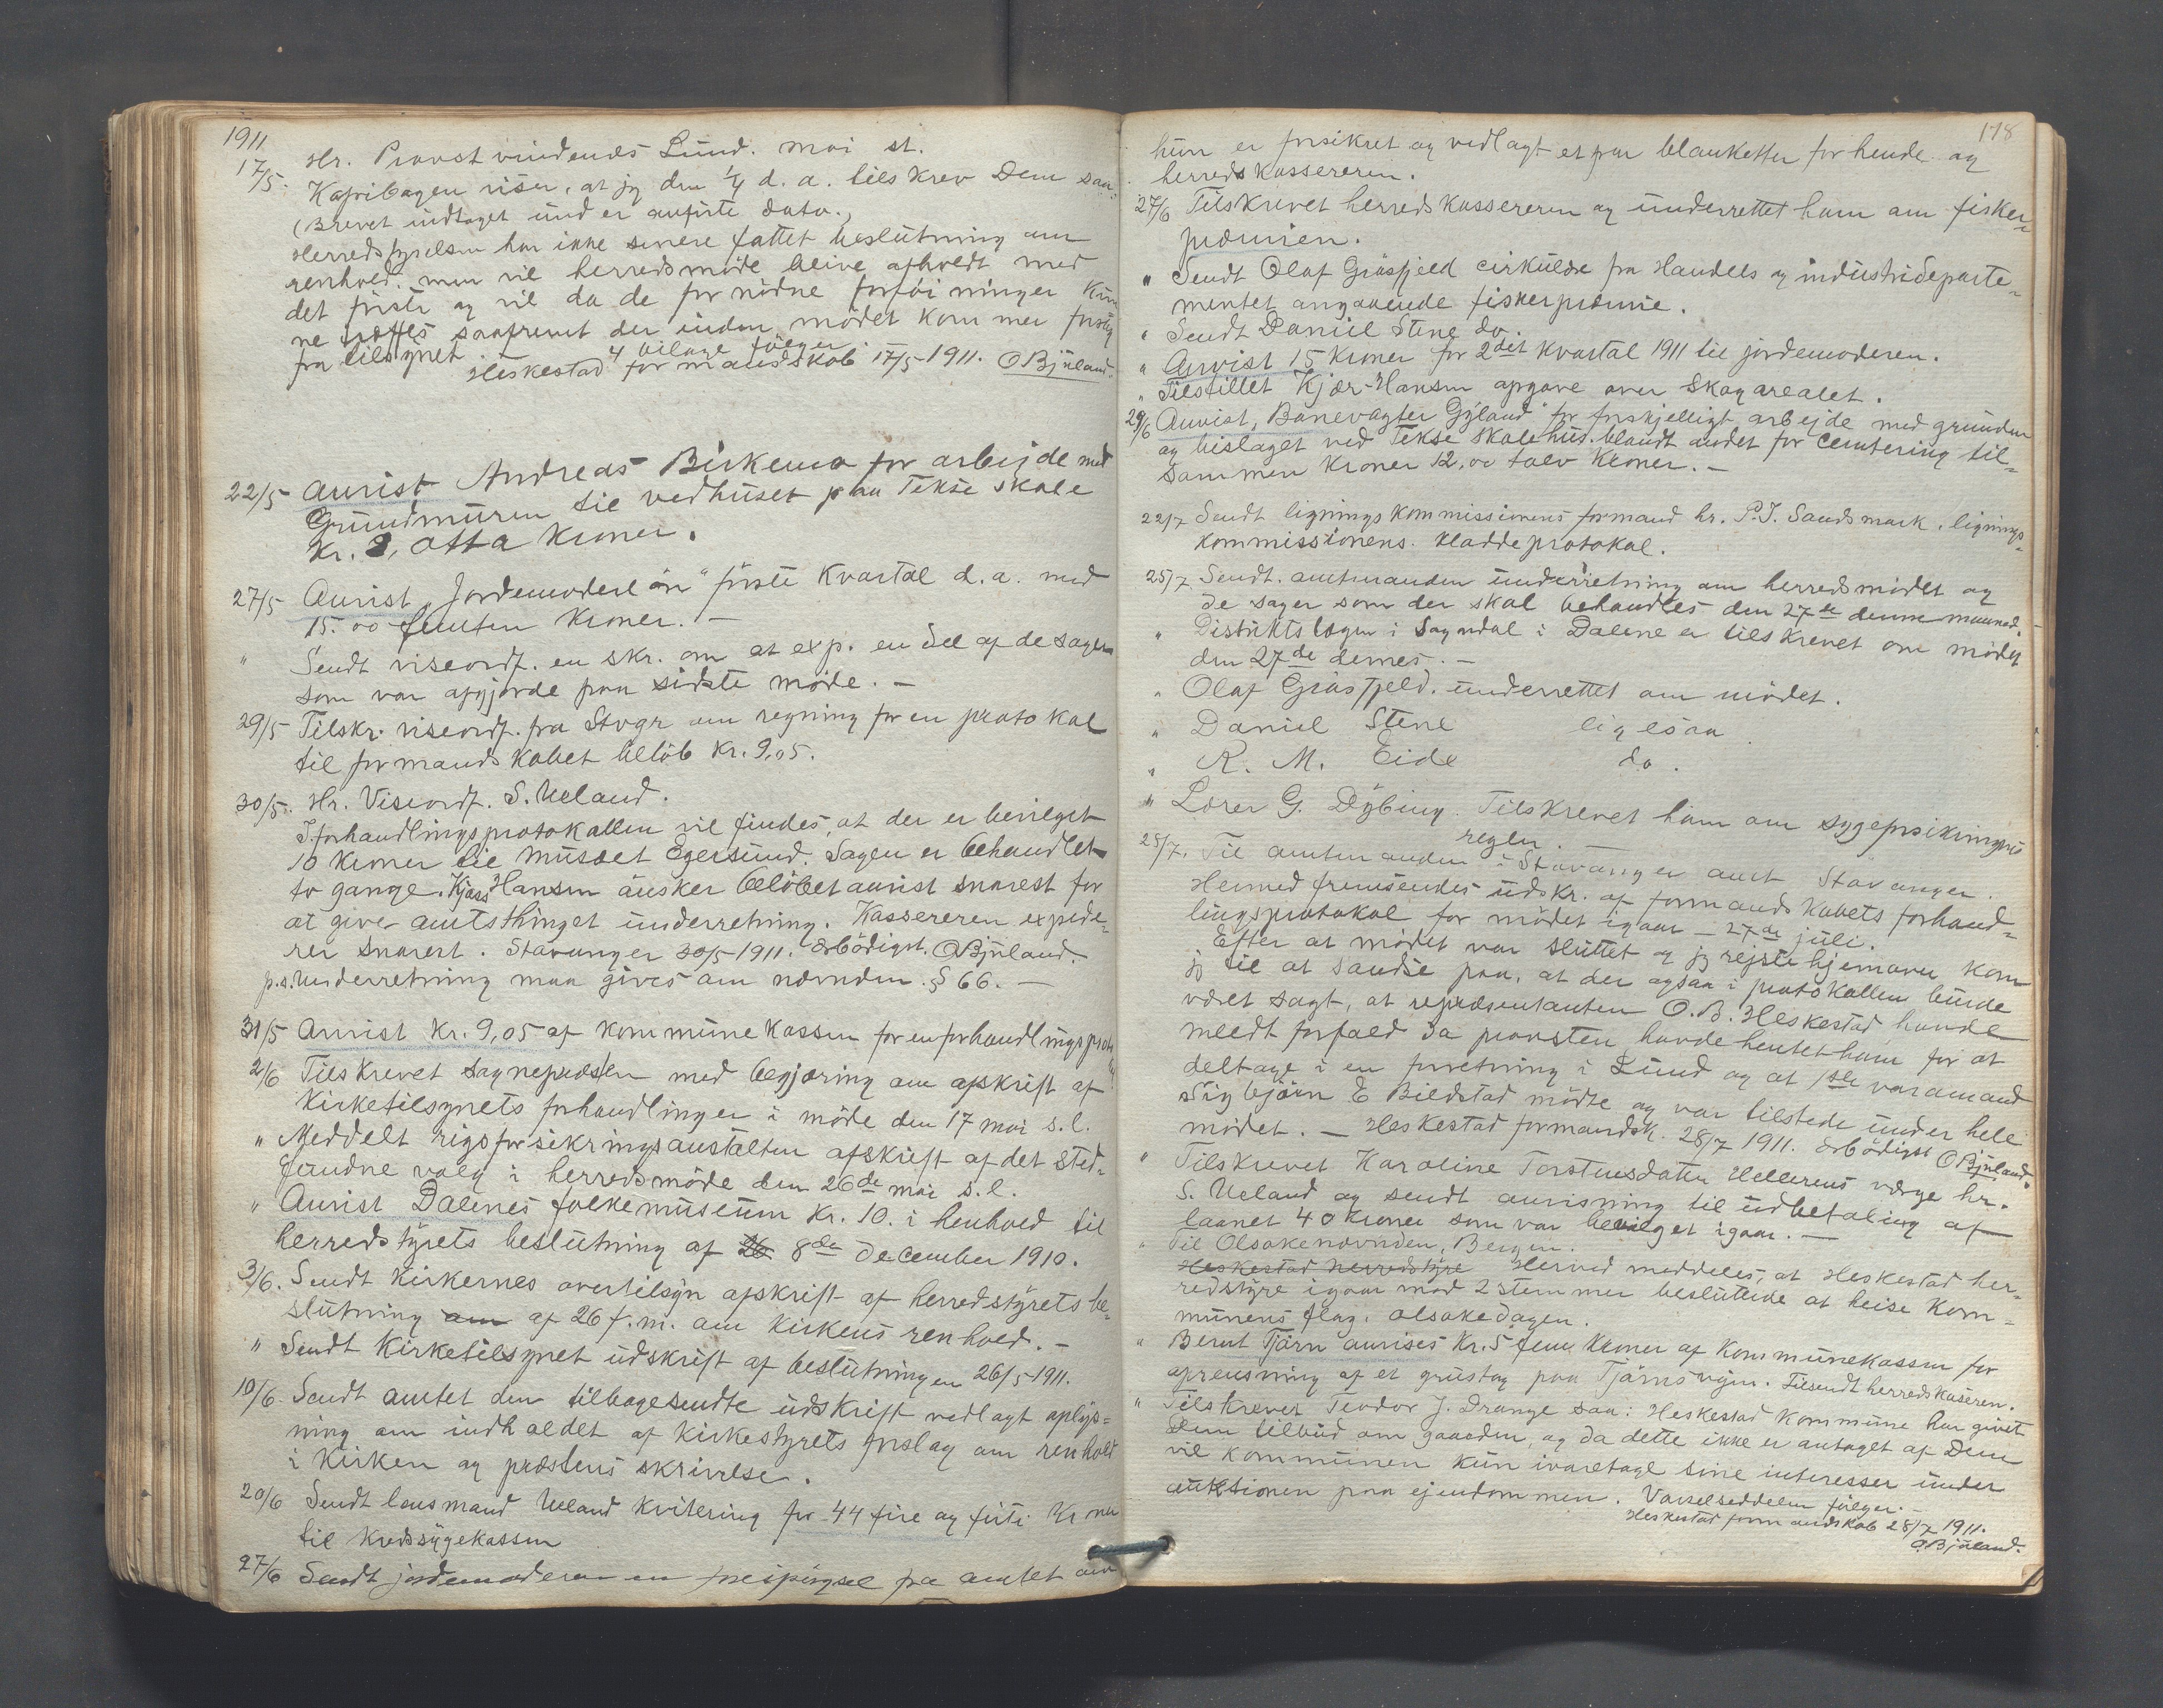 1911
17/5. Hr. Provst Lund. moi st.
Kopibogen viser, at jeg den 1/4 d. a. tilskrev Dem saa:
(Brevet indtaget under anførte dato.)
Herredstyrelsen har ikke senere fattet beslutning om
renhold. men vil herredsmöde blive afholdt med
det förste og vil da de fornödne forföininger kun
ne træffes saafremt der inden mödet kommer forslag
fra tilsynet. — 4 bilage fölger.
Heskestad formandskab 17/5-1911. O Bjuland.
22/5 Anvist Andreas Birkemo for arbejde med
Grundmuren til vedhuset paa Tekse skole
Kr. 8, otta Kroner.
27/5 Anvist "Jordemoderlön" förste Kvartal d. a. med
15.00 femten Kroner. —
" Sendt viseordf. en skr. om at exp. en del af de sager
som var afgjorde paa sidste möde. —
29/5 Tilskr. viseordf. fra Stvgr om regning for en protokol
til formandskabet belöb Kr. 9,05.
30/5. Hr. Viseordf. S. Ueland.
I forhandlingsprotokollen vil findes, at der er bevilget
10 Kroner til Museet Egersund. Sagen er behandlet
to gange. Hansen önsker belöbet anvist snarest for
at give amtsthinget underretning. Kassereren expede-
rer snarest. Stavanger 30/5-1911. Ærbödigst. O Bjuland.
p.s. Underretning maa gives om nævnden. § 66. —
31/5 Anvist Kr. 9,05 af Kommunekassen for en forhandlingsprotokol
2/6 Tilskrevet Sognepræsten med begjæring om afskrift af
Kirketilsynets forhandlinger i möde den 17 mai s. l.
" Meddelt rigsforsikringsanstalten afskrift af det sted-
fundne valg i herredsmöde den 26de mai s. l.
" Anvist Dalenes folkemuseum Kr. 10. i henhold til
herredstyrets beslutning af 26 8de December 1910.
3/6. Sendt Kirkernes overtilsyn afskrift af herredstyrets be-
slutning om af 26 f. m. om Kirkens renhold. —
" Sendt Kirketilsynet udskrift af beslutningen 26/5-1911.
10/6 Sendt amtet den tilbagesendte udskrift vedlagt oplys-
ning om indholdet af Kirkestyrets forslag om renhold
i Kirken og præstens skrivelse.
20/6 Sendt lensmand Ueland Kvitering for 44 fire og firti Kroner
til Kredssygekassen
27/6 Sendt jordemoderen en fra amtet om
178
hun er forsikret og vedlagt et par blanketter for hende og
herredskassereren.
27/6 Tilskrevet herredskassereren og underrettet ham om fisker-
præmien.
" Sendt Olaf Gråsfjeld cirkulære fra Handels og industrideparte-
mentet angaaende fiskerpræmie.
" Sendt Daniel Stene do.
" Anvist 15 Kroner for 2det Kvartal 1911 til jordemoderen.
" Tilstillet Kjær-Hansen opgave over Skogarealet.
29/6 Anvist, Banevogter Gyland for forskjelligt arbejde med grunden
og bislaget ved Tekse skolehus. blandt andet for Cemtering til-
sammen Kroner 12,00 tolv Kroner. —
22/7 Sendt ligningskommissionens formand hr. P. J. Sandsmark, lignings-
kommissionens Kladdeprotokol.
25/7 Sendt amtmanden underretning om herredsmödet og
de sager som der skal behandles den 27de denne maaned.
" Distriktslægen i Sogndal i Dalene er tilskrevet om mödet
den 27de dennes. —
" Olaf Gråsfjeld underrettet om mödet.
" Daniel Stene ligesaa
" R. M. Eide do.
" Lærer G. Dybing. Tilskrevet ham om sygeforsikrings
reglen. —
25/7. Til amtmanden i Stavanger amt Stavanger.
Hermed fremsendes udskr. af formandskabets forhand-
lingsprotokol for mödet igaar — 27de juli.
Efter at mödet var sluttet og jeg rejste hjemover kom
jeg til at sandse paa, at der ogsaa i protokollen burde
været sagt, at repræsentanten O. B. Heskestad havde
meldt forfald da provsten havde hentet ham for at
deltage i en forretning i Lund og at 1ste varamand
Sigbjörn E Bildstad mödte og var tilstede under hele
mödet. — Heskestad formandsk. 28/7 1911. Ærbödigst O Bjuland.
" Tilskrevet Karoline Torstensdatter Hellerens værge hr.
S. Ueland og sendt anvisning til udbetaling af
laanet 40 Kroner som var bevilget igaar. —
" Til Olsokenævnden, Bergen.
Heskestad herredstyre Herved meddeles, at Heskestad her-
redstyre igaar mod 2 stemmer besluttede at heise Kom-
munens flag, olsokedagen.
" Bernt Tjörn anvises Kr. 5 fem Kroner af Kommunekassen for
oprensning af et grustag paa Tjörnsvejen. Tilsendt herredskaseren.
" Tilskrevet Teodor J. Drange saa: Heskestad Kommune har givet
Dem tilbud om gaarden, og da dette ikke er antaget af Dem
vil kommunen kun ivaretage sine interesser under
auktionen paa ejendommen. Varselseddelen fölger. —
Heskestad formandskab 28/7 1911.
O. Bjuland.